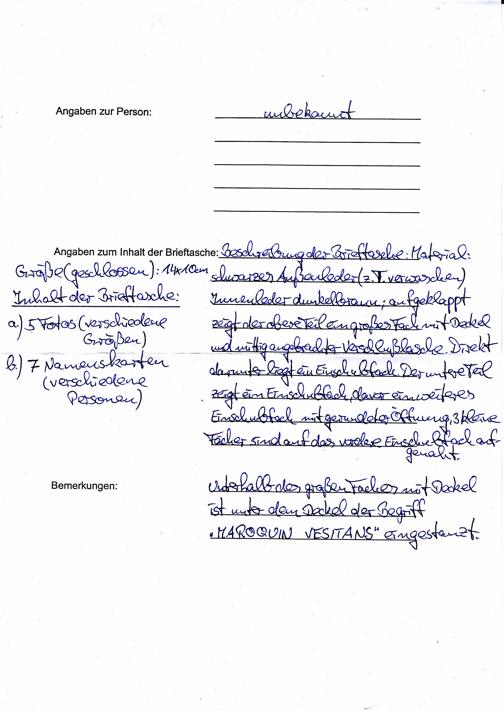 Angaben zur Person: unbekannt
Angaben zum Inhalt der Brieftasche: Beschreibung der Brieftasche: Material:
Größe (geschlossen): 14x10cm schwarzes Außenleder (z.T. verwaschen)
Inhalt der Brieftasche: Innenleder dunkelbraun; aufgeklappt
a) 5 Fotos (verschiedene zeigt der obere Teil ein großes Fach mit Deckel
Größen) und mittig angebrachter Verschlußlasche. Direkt
b.) 7 Namenskarten darunter liegt ein Einschubfach. Der untere Teil
(verschiedene zeigt ein Einschubfach, davor ein weiteres
Personen) Einschubfach mit gerundeter Öffnung, 3 kleine
Fächer sind auf das vordere Einschubfach auf-
genäht.
Bemerkungen: Unterhalb des großen Faches mit Deckel
ist unter dem Deckel der Begriff
"MAROQUIN VESITANS" eingestanzt.